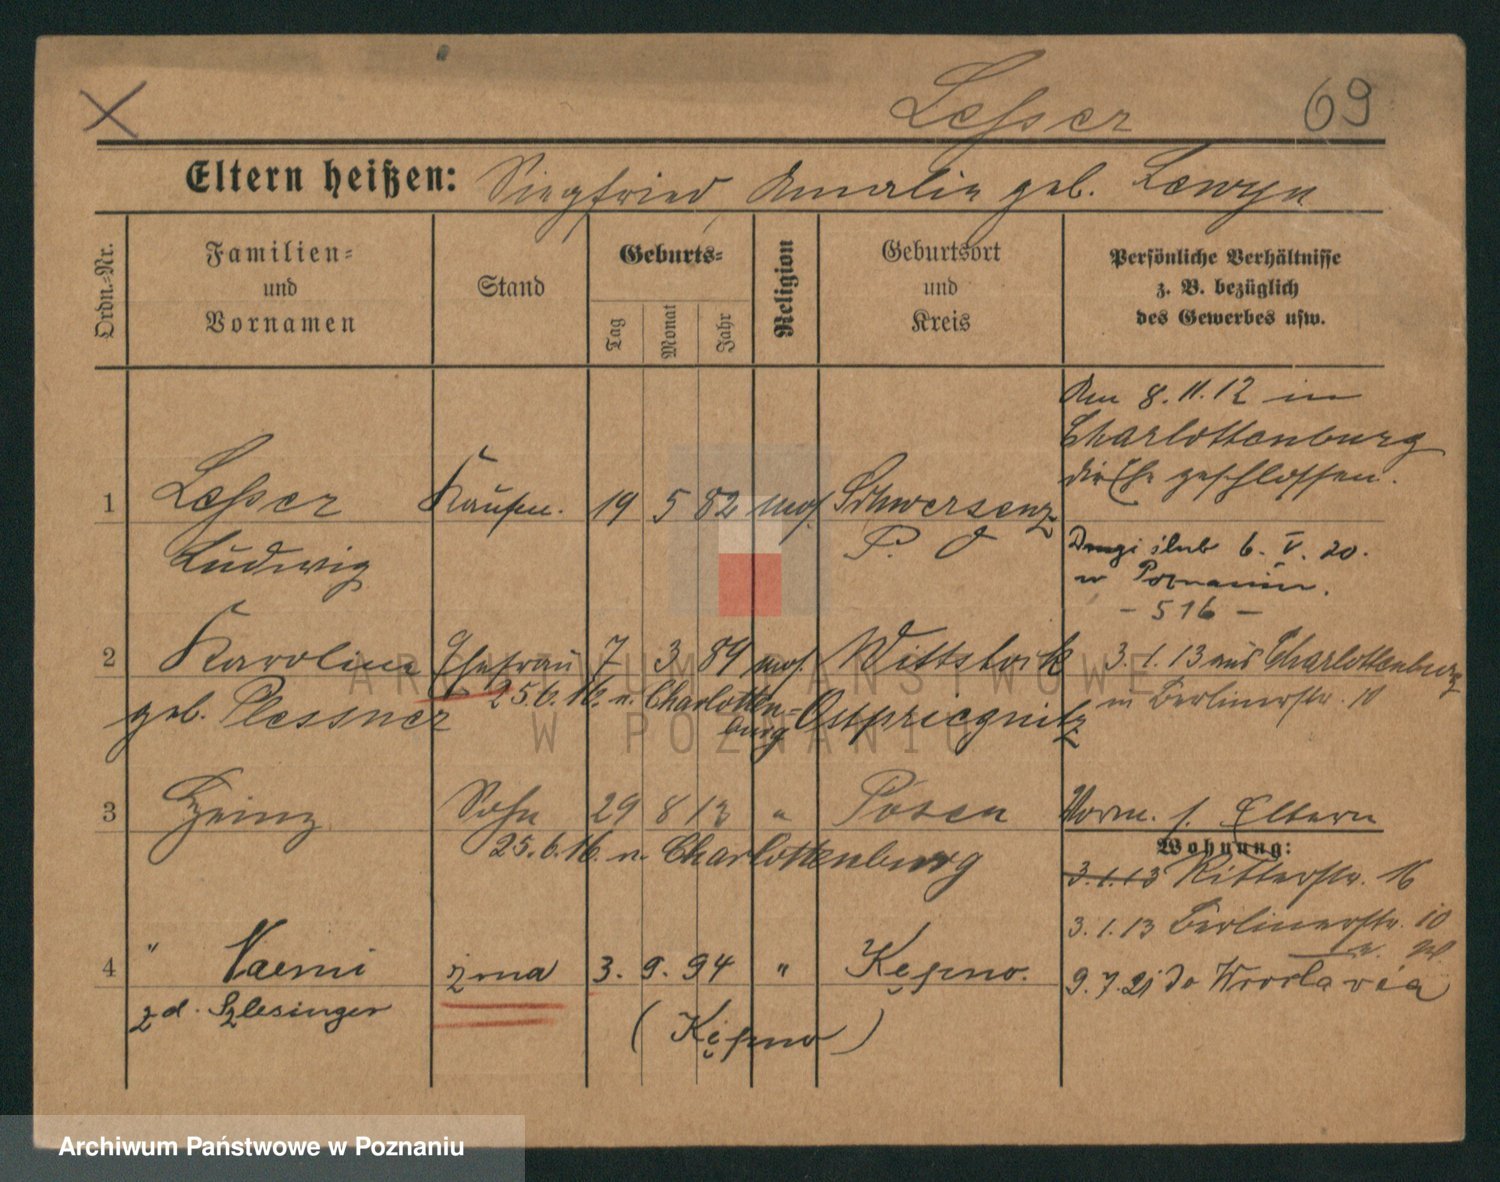 Lesser 69
Eltern heißen: Siegfried Amalie geb. Lewyn
Ordn.-Nr.
Familien-
und
Vornamen
Stand
Geburts-
Tag
Monat
Jahr
Religion
Geburtsort
und
Kreis
Persönliche Verhältnisse
z. B. bezüglich
des Gewerbes usw.
Am 8. 11. 12 in
Charlottenburg
die Ehe geschlossen.
1 Lesser Kaufm. 19 5 82 mos. Schwersenz
Ludwig P. O
Drugi ślub 6. V. 20.
w Poznaniu.
- 516 -
2 Karoline Ehefrau 7 3 89 mos. Wittstock
3. 1. 13 aus Charlottenburg
geb. Plessner 25.6.16. n. Charlotten=
burg
Ostpriegnitz
in Berlinerstr. 10
3 Heinz Sohn 29 8 13 " Posen
25.6.16. n. Charlottenburg
Vorm. s. Eltern
Wohnung:
3.1.13 Ritterstr. 16
3.1.13 Berlinerstr. 10
4 " Naemi żona 3. 9. 94 " Kępno.
9.7.21 do Wrocławia
z d. Szlesinger (Kępno)
ARCHIWUM PAŃSTWOWE
W POZNANIU
Archiwum Państwowe w Poznaniu